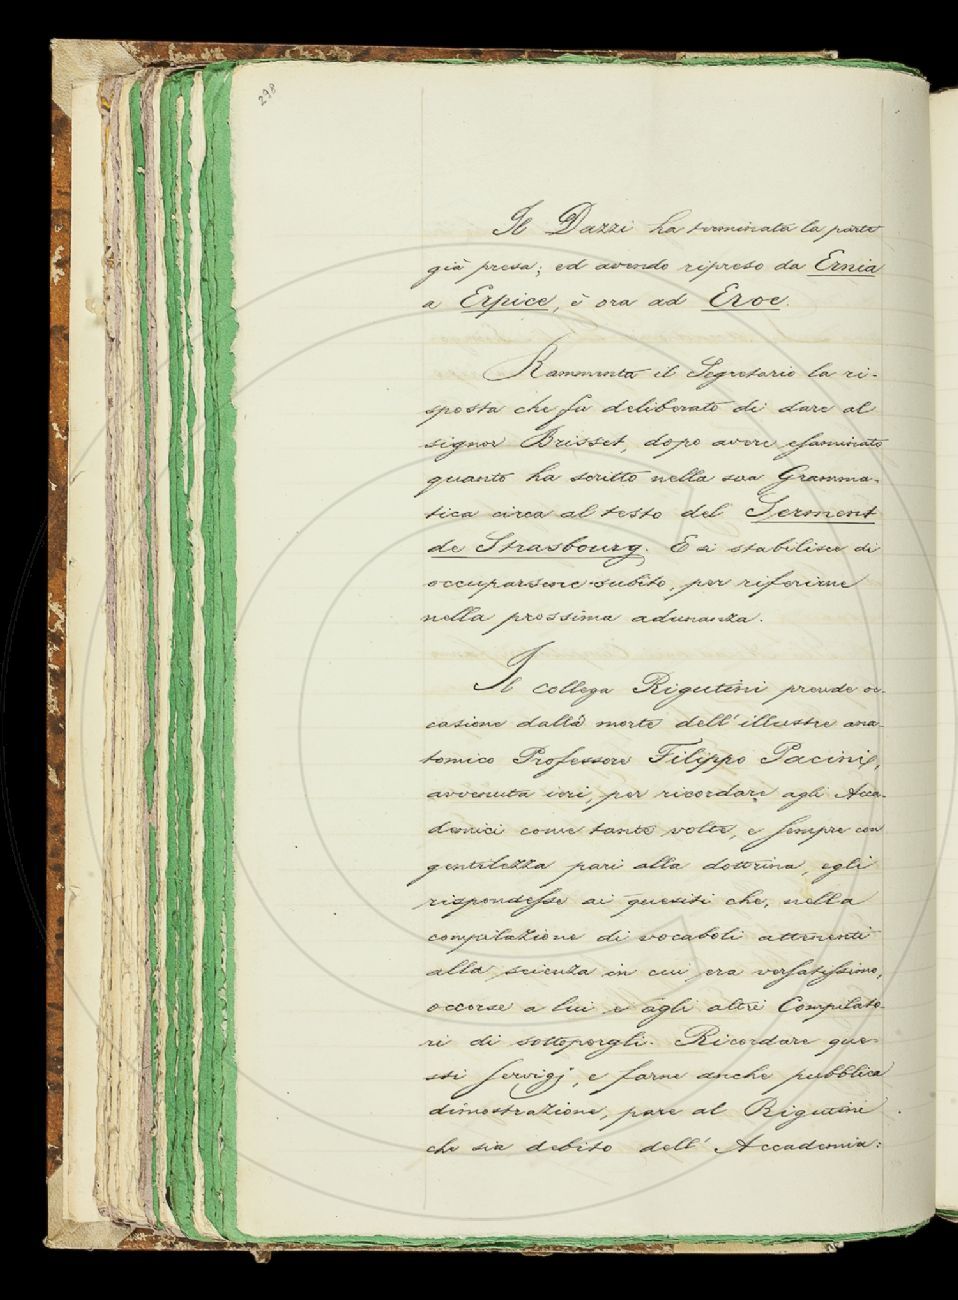 278
Il Dazzi ha terminata la parte
già presa; ed avendo ripreso da Ernia
a Erpice, è ora ad Eroe.
Rammenta il Segretario la ri-
sposta che fu deliberato di dare al
signor Brisset, dopo avere esaminato
quanto ha scritto nella sua Gramma-
tica circa al testo del Serment
de Strasbourg. E si stabilisce di
occuparsene subito, per riferirne
nella prossima adunanza.
Il collega Rigutini prende oc-
casione dalla morte dell' illustre ana-
tomico Professore Filippo Pacini,
avvenuta ieri, per ricordare agli Acca-
demici come tante volte, e sempre con
gentilezza pari alla dottrina, egli
rispondesse ai quesiti che, nella
compilazione di vocaboli attenenti
alla scienza in cui era versatissimo,
occorse a lui e agli altri Compilato-
ri di sottoporgli. Ricordare que-
sti servigj, e farne anche pubblica
dimostrazione, pare al Rigutini
che sia debito dell' Accademia: